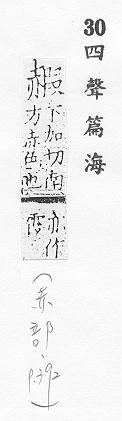 30 四聲篇海
赮 下加切南
方赤色也
亦作
霞
(赤部、p.392)